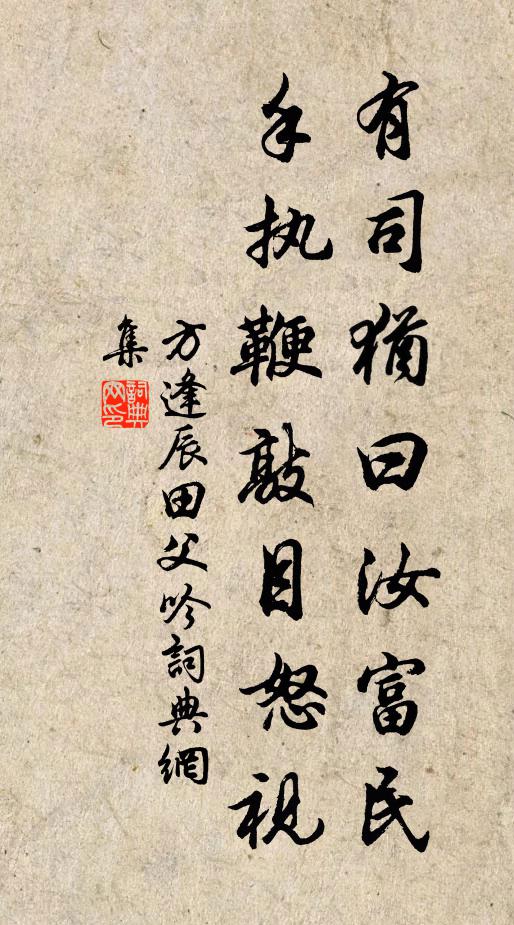 有司猶曰汝富民
手执鞭敲目怒視
方逢辰田父吟詞典網
集
詞典
网印